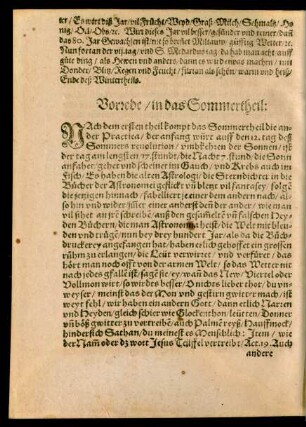 ter / Es wirt diß Jar / vil Frücht / Weyd / Graß / Milch / Schmalz / Ho⸗
nig / Öl / Obs / ꝛc. Wirt dieses Jar vil besser / gesünder vnd reiner / dañ
das 80. Jar Gewachsen ist / mit so bester Witterung / günstig Wetter / ꝛc.
Nun fortan der vij. tag / vnd S. Medardus tag da hab man acht auff
güte ding / als Hewen vnd anders / dann es wird etwas machen / mit
Donder / Blitz / Regen vnd Feucht / sunst als schön / warm vnd heiß /
Ende deß Wintertheils.
Vorrede / in das Sommertheil:
NAch dem ersten theil kompt das Sommertheil die an⸗
der Practica / der anfang würt auff den 12. tag deß
Sommers reuolution / vmbkehren der Sonnen / ist
der tag am lengsten 17. stund / die Nacht 7. stund / die Sonn
anfahet / gehet vnd scheinet im Gauch / vnd Krebs auch im
Fisch / Es haben die alten Astrologi / die Sterndichter in die
Bücher der Astronomei geflickt vñ bleyt vil fantasey / folgẽ
die jenigen hinnach / fabelierts jeener dem andern nach / al⸗
so hin vnd wider / füllet eine anderst deñ der ander / wie man
vil fihet an jre schreibẽ / auß den gesamletẽ vñ falschen Hey⸗
den Büchern / die man Astronomia heist / die Welt mit blen⸗
den vnd triegẽ / nun bey drey hundert Jar / als da die Büch⸗
druckerey angefangen hat / haben etlich gehoffet ein grossen
rühm zu erlangen / die Leüt verwirret / vnd verfüret / das
hört man noch offt von der armen Welt / so das Wetter nit
nach jedes gfallẽ ist / sagẽ sie / ey / wañ das New / Viertel oder
Vollmon wirt / so wirdts besser / O nichts lieber thor / du vn⸗
weyser / meinst das der Mon vnd gestirn würt / nach / ist
weyt fehl / wir haben ein andern Gott / dann etlich Narren
vnd Heyden / gleich schier wie Glockenthon leütten / Donner
vñ böß gwitter zu vertreibẽ / auch Palmẽ reyß / Hauffmock /
hinderisch Sathan / du meinest es Menschlich : Item / wie
der Nam̃ oder dz wort Jesus Teüffel vertreibt / Act. 19. Auch
andere